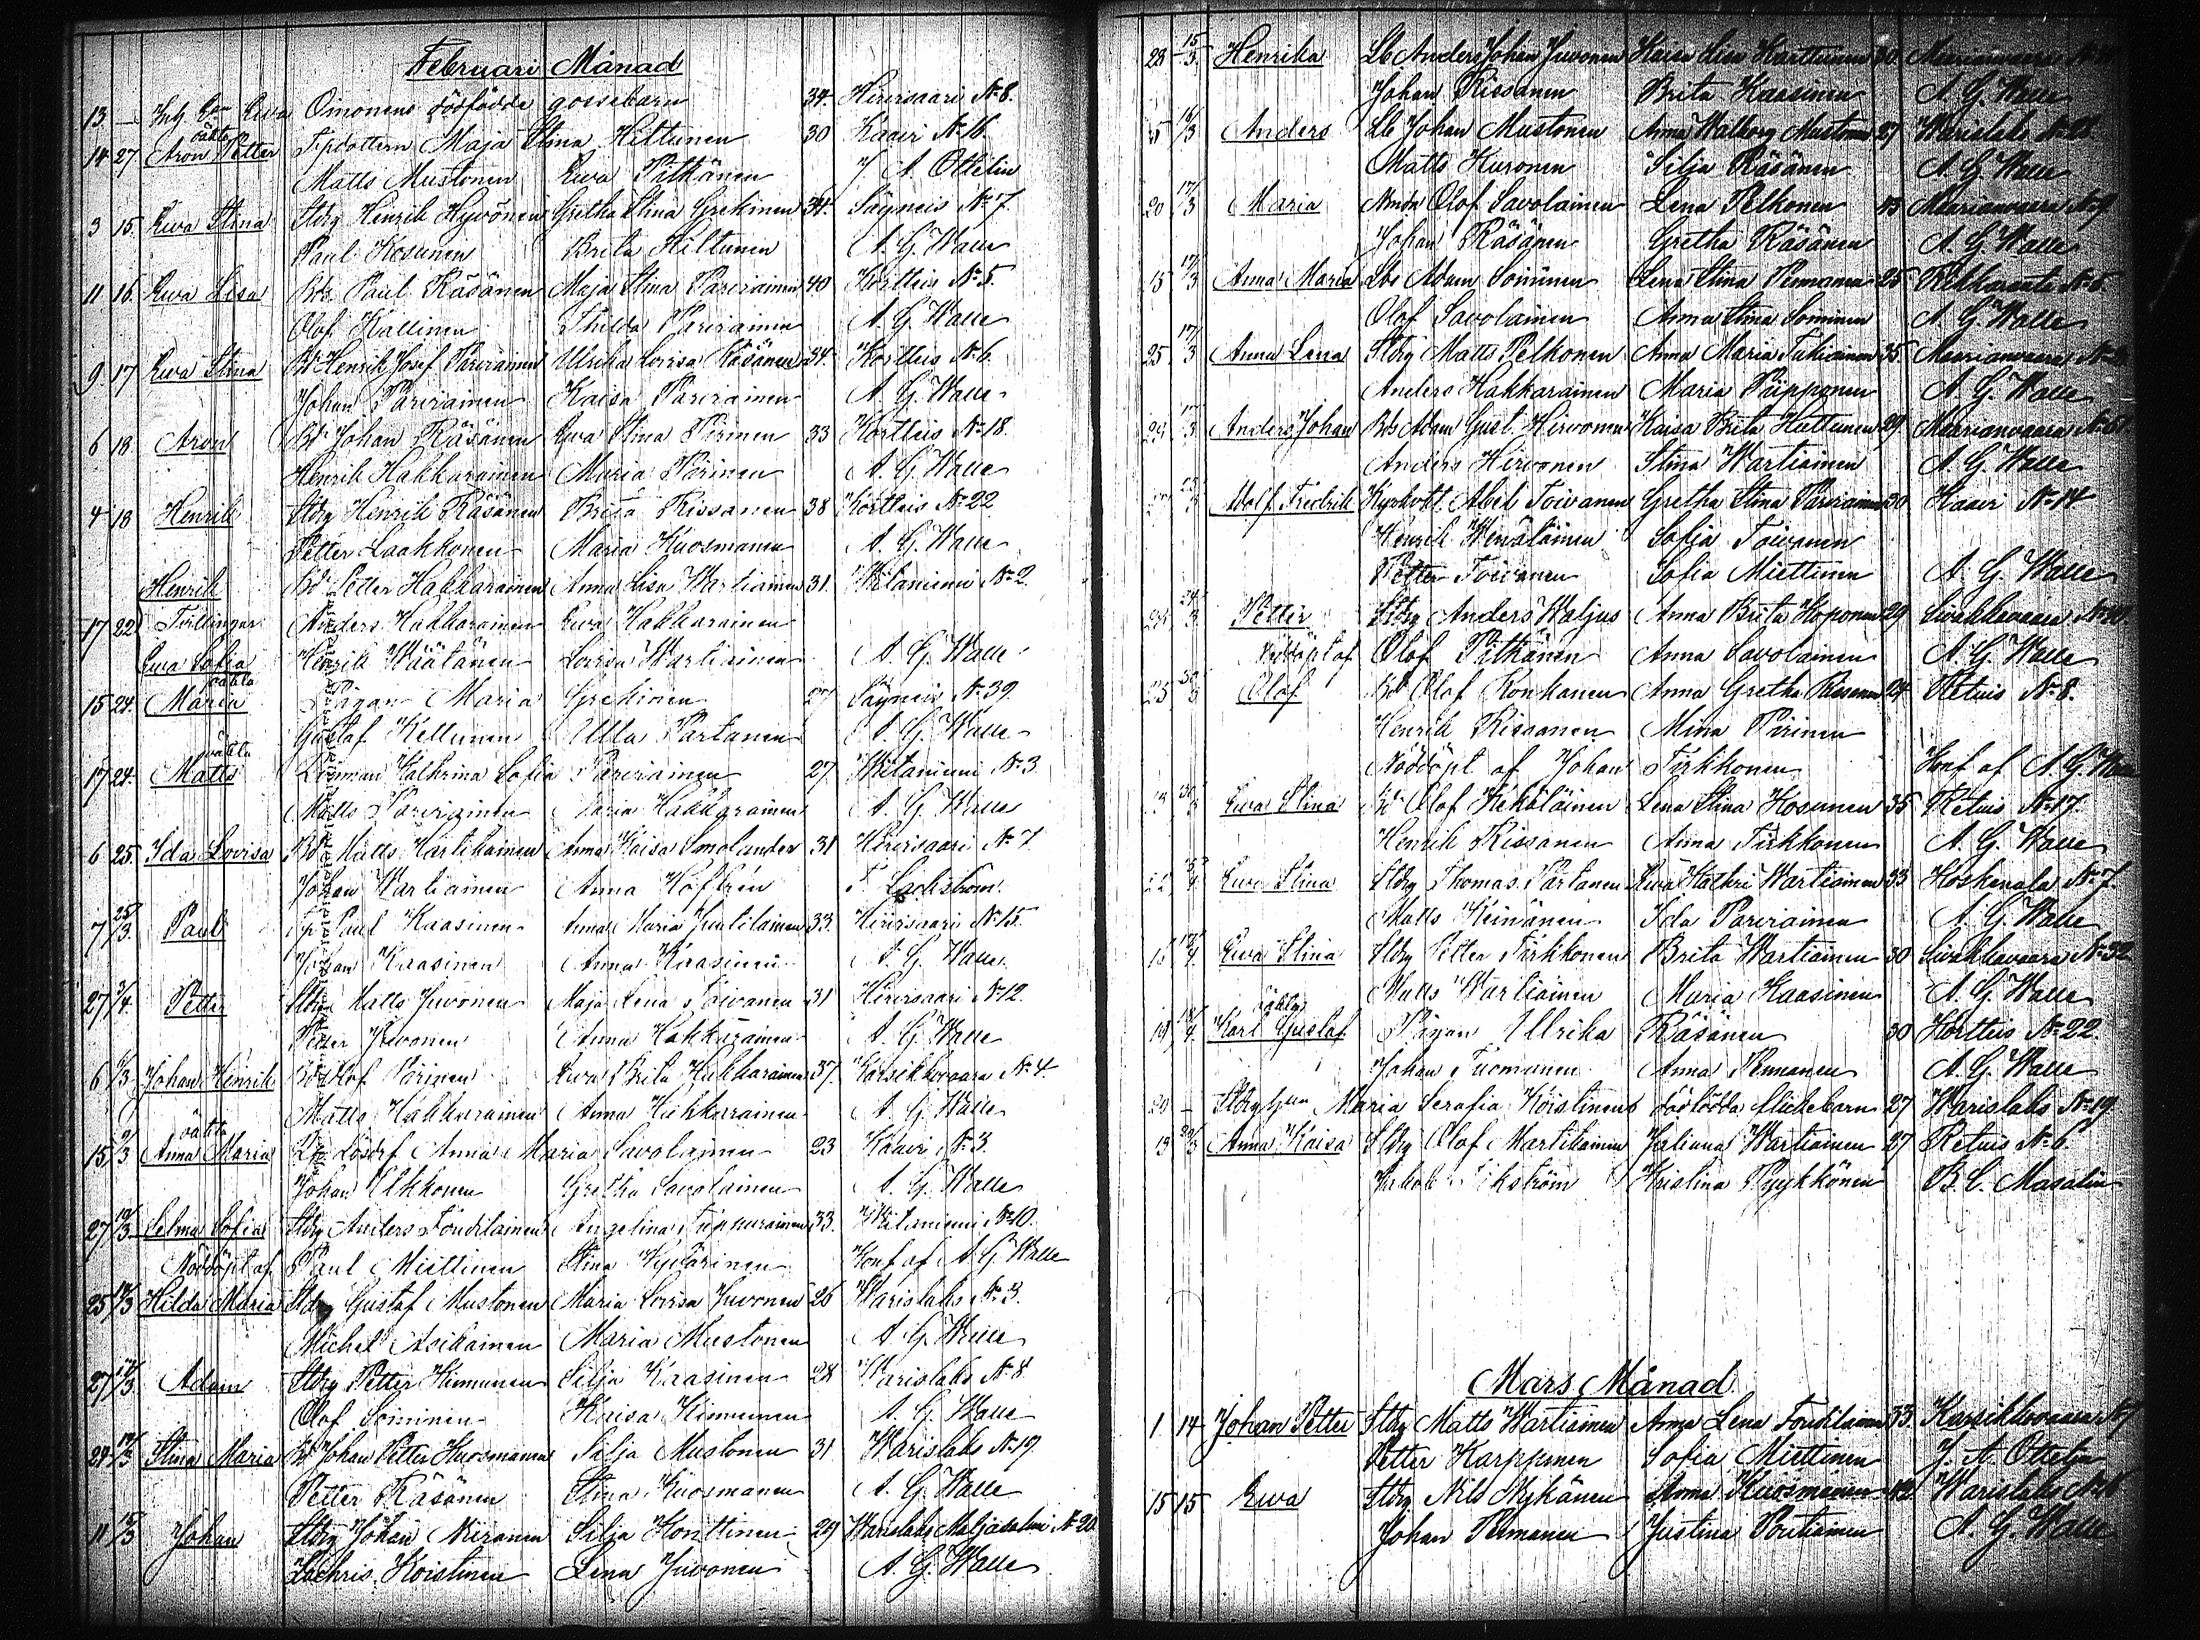 Februari Månad
13 — Inh. Eva Oinonens dödfödda gossebarn 34 Hirvisaari No 8.
oäkta
14 27 Aron Petter Tjpdottern Maja Stina Hiltunen 30 Kaavi No 16.
Matts Mustonen Ewa Pitkänen J A Ottelin
3 15 Ewa Stina Stbg Henrik Hyvönen Gretha Stina Grekinen 34 Säyneis No 7.
Paul Kosunen Brita Hiltunen A. G. Walle
11 16 Ewa Lisa Bd. Paul Räsänen Maja Stina Parviainen 40 Kortteis No 5.
Olof Kallinen Thilda Parviainen A. G. Walle
9 17 Ewa Stina Bd Henrik Josef Parviainen Ulrika Lovisa Räsänen 34 Kortteis No 6.
Johan Parviainen Kaisa Parviainen A. G. Walle
6 18 Aron Bd Johan Räsänen Ewa Stina Pirinen 33 Kortteis No 18.
Henrik Hakkarainen Maria Pirinen A. G. Walle
4 18 Henrik Stbg Henrik Räsänen Brita Rissanen 38 Kortteis No 22
Petter Laakkonen Maria Kuosmanen A. G. Walle
Henrik Bd Petter Hakkarainen Anna Lisa Wartiainen 31. Witaniemi No 2.
17 22 Tvillingar Anders Hakkarainen Ewa Hakkarainen
Ewa Sofia Henrik Wäätänen Lovisa Wartiainen A. G. Walle
oäkta
15 24 Maria Pigan Maria Grekinen 27 Säyneis No 39.
Gustaf Keltunen Ulla Partanen A. G. Walle
oäkta
17 24 Matts Katharina Sofia Parviainen 27 Witaniemi No 3.
Matts Parviainen Maria Hakkarainen A. G. Walle
6 25 Ida Lovisa Bd Matts Martikainen Anna Kaisa Smolander 31 Hirvisaari No 7
Johan Wartiainen Anna Hoffrén F. Lackström.
7 25/3 Paul Paul Kaasinen Anna Maria Juutilainen 33. Hirvisaari No 15.
Johan Kaasinen Anna Kaasinen A. G. Walle.
27 3/4 Petter Stbg Matts Juvonen Maja Lena Toivanen 31 Hirvisaari No 12.
Petter Juvonen Anna Hakkarainen A. G. Walle
6 6/3 Johan Henrik Bd Olof Pirinen Ewa Brita Hakkarainen 37. Karsikkovaara No 4.
Matts Hakkarainen Anna Hakkarainen A. G. Walle
oäkta
15 9/3 Anna Maria Lösdrf Anna Maria Savolainen 23 Kaavi No 3.
Johan Ukkonen Gretha Savolainen A. G. Walle
27 10/3 Selma Sofia Stbg Anders Toudilainen Angelina Tuppurainen 33. Witaniemi No 10.
Nöddöpt af Paul Miettinen Stina Hyvärinen Konf af A. G. Walle
25 12/3 Hilda Maria Stbg Gustaf Mustonen Maria Lovisa Juvonen 26 Warislaks No 3.
Michel Asikainen Maria Mustonen A. G. Walle
27 12/3 Adam Stbg Petter Kinnunen Silja Kaasinen 28 Warislaks No 8
Olof Soininen Kaisa Kinnunen A. G. Walle
24 12/3 Stina Maria Bd Johan Petter Kuosmanen Silja Mustonen 31 Warislaks No 19.
Petter Räsänen Stina Kuosmanen A. G. Walle
11 15/3 Johan Stbg Johan Miranen Silja Konttinen 29 Warislaks Maljasalmi No 20
Zachris Koistinen Lena Juvonen A. G. Walle
28 15/3 Henrika Lb Anders Johan Juvonen Kaisa Lisa Karttunen 30 Maarianvaara
Johan Rissanen Brita Kaasinen A. G. Walle
5 16/3 Anders Lb Johan Mustonen Anna Walborg Mustonen 27 Warislaks No 28.
Matts Huronen Silja Räsänen A. G. Walle
20 17/3 Maria Olof Savolainen Lena Pelkonen 45 Maarianvaara No 9.
Johan Räsänen Gretha Räsänen A. G. Walle
15 17/3 Anna Maria Lbs Adam Soininen Lena Stina Pennanen 25 No 5.
Olof Savolainen Anna Stina Soininen A. G. Walle
25 17/3 Anna Lena Stbg Matts Pelkonen Anna Maria Tukiainen 35 Maarianvaara
Anders Hakkarainen Maria Piipponen A. G. Walle
24 17/3 Anders Johan Bds Adam Gust. Hirvonen Kaisa Brita Hattunen 29 Maarianvaara No 6
Anders Hirvonen Stina Wartiainen A. G. Walle
Adolf Fredrik Kyrkobt. Abel Toivanen Gretha Stina Parviainen 30 Kaavi No 14
Henrik Wenäläinen Sofia Toivanen
Petter Toivanen Sofia Miettinen A. G. Walle
24/3 Petter Stbg Anders Waljus Anna Brita Koponen 29 Siwakkavaara
Nöddöpt af Olof Pitkänen Anna Savolainen A. G. Walle
25 30/3 Olof Bd Olof Ronkanen Anna Gretha Rissanen 24 Retuis No 8.
Henrik Rissanen Mina Pirinen
Nöddöpt af Johan Tirkkonen Konf af A. G. Walle
Ewa Stina Bd Olof Kekäläinen Lena Stina Kosunen 35 Retuis No 17.
Henrik Rissanen Anna Tirkkonen A. G. Walle
Ewa Stina Stbg Thomas Partanen Ewa Kathri Wartiainen 33 Koskenala No 7.
Matts Keinänen Ida Parviainen A. G. Walle
Ewa Stina Stbg Petter Tirkkonen Brita Wartiainen 30 Siwakkavaara No 32
Matts Wartiainen Maria Kaasinen A. G. Walle
oäkta
19 18/4 Karl Gustaf Pigan Ullrika Räsänen 30 Kortteis No 22.
Johan Tuomanen Anna Pennanen A. G. Walle
20 — Stbg hun Maria Serafia Koistinens dödfödda flickebarn 27 Warislaks No 19.
13 Anna Kaisa Stbg Olof Martikainen Juliana Wartiainen 27 Retuis No 6.
Jakob Kristina Pyykkönen B. C. Masalin
Mars Månad.
1 14 Johan Petter Stbg Matts Wartiainen Anna Lena Toudilainen 33 Karsikkovaara No 7
Petter Karppinen Sofia Miettinen J. A. Ottelin
15 15 Ewa Stbg Nils Nykänen Anna Kuosmanen 42 Warislaks
Johan Pennanen Justina Poutiainen A. G. Walle